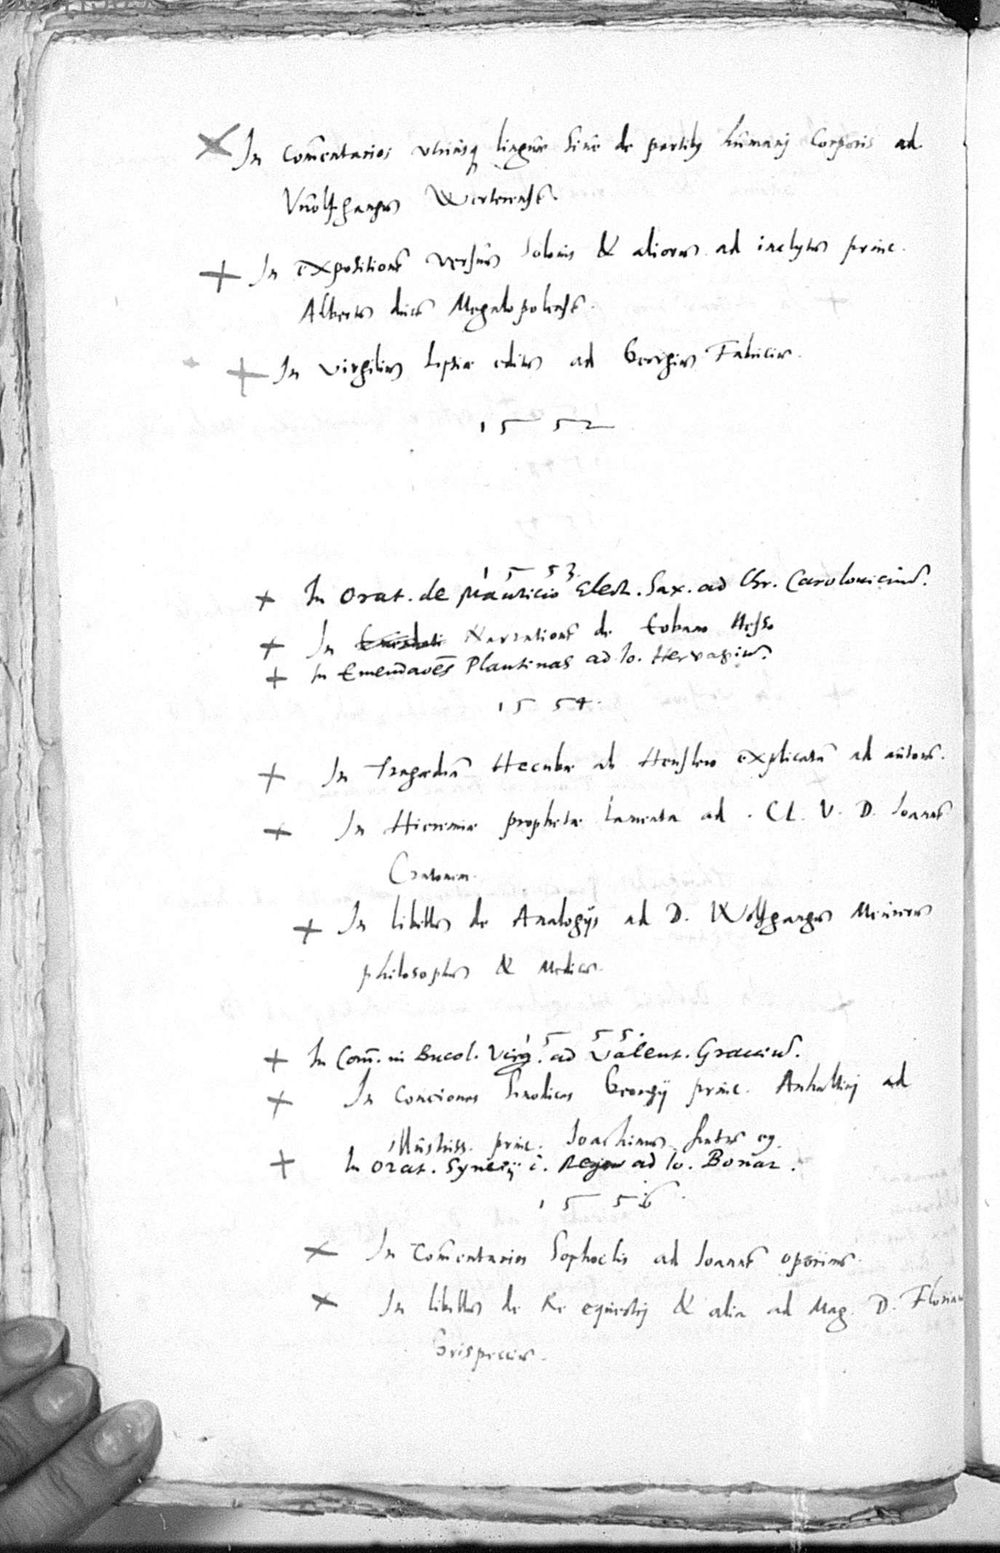 In Com̄entarios utriusq linguæ sive de partib humani Corporis ad
Vuolfgangū Werterensē.
In expositionē versuū Solonis & aliorum ad inclytū princ.
Albertū ducē Megalopolensē.
In Virgiliū Lipsiæ editū ad Georgiū Fabriciū.
1552
1553
In Orat. de Mauricio Elect. Sax. ad Chr. Carolouiciū.
In Narrationē de Eobano Hesso
In Emendaōēs Plautinas ad Io. Hervagiū.
1554.
In Tragœdiā Hecubæ ab Henslero explicatā ad autorē.
In Hieremiæ prophetæ lamenta ad . Cl. V. D. Joannē
Cratonem.
In libellū de Analogijs ad D. Wolfgangū Meurerū
philosophū & Medicū.
1555.
In Com̄. in Bucol. Virg. ad Valent. Graviū.
In Conciones Synodicas Georgij princ. Anhaltini ad
illustriss. princ. Joachimū fratrē eq.
In Orat. Synesij d. Regno ad Io. Bonar.
1556.
In Com̄entarios Sophoclis ad Joannē oporinū.
In libellū de Re equestri & alia ad Mag. D. Florianū
Grispeccū.